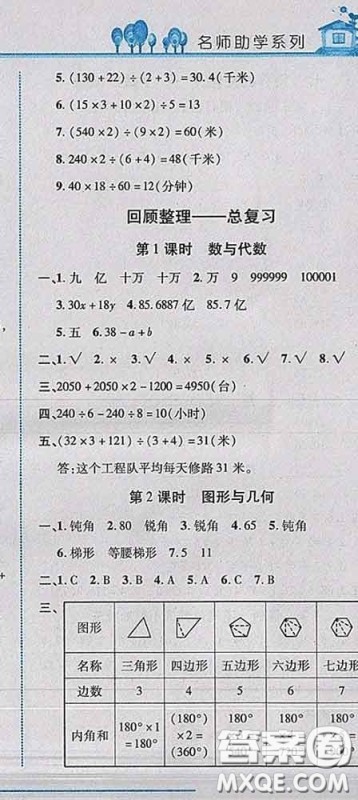 名师助学系列
5. (130+22)÷(2+3)=30.4(千米)
6. (15×3+10×2)÷5=13(米)
7. (540×2)÷(9×2)=60(米)
8. 240×2÷(6+4)=48(千米)
9. 40×18÷60=12(分钟)
回顾整理——总复习
第1课时 数与代数
一、1. 九 亿 十万 十万 2. 万 9 999999 100001
3. 30x+18y 4. 85.6887亿 85.7亿
5. 五 6. 38-a+b
二、1. √ 2. × 3. × 4. × 5. √ 6. √ 7. √ 8. √
三、2050+2050×2-1200=4950(台)
四、240÷6-240÷8=10(小时)
五、(32×3+121)÷(3+4)=31(米)
答:这个工程队平均每天修路31米。
第2课时 图形与几何
一、1. 钝角 2. 80 锐角 3. 锐角 4. 65 5. 钝角
6. 梯形 等腰梯形 7. 5 11
二、1. C 2. B 3. B 4. B 5. C 6. C 7. B
三、
图形
名称 三角形 四边形 五边形 六边形 七边形
边数 3 4 5 6 7
内角和 180°×1=180° (180°)×2=(360°) 180° 180° 180°
答案圈
MXQE.COM